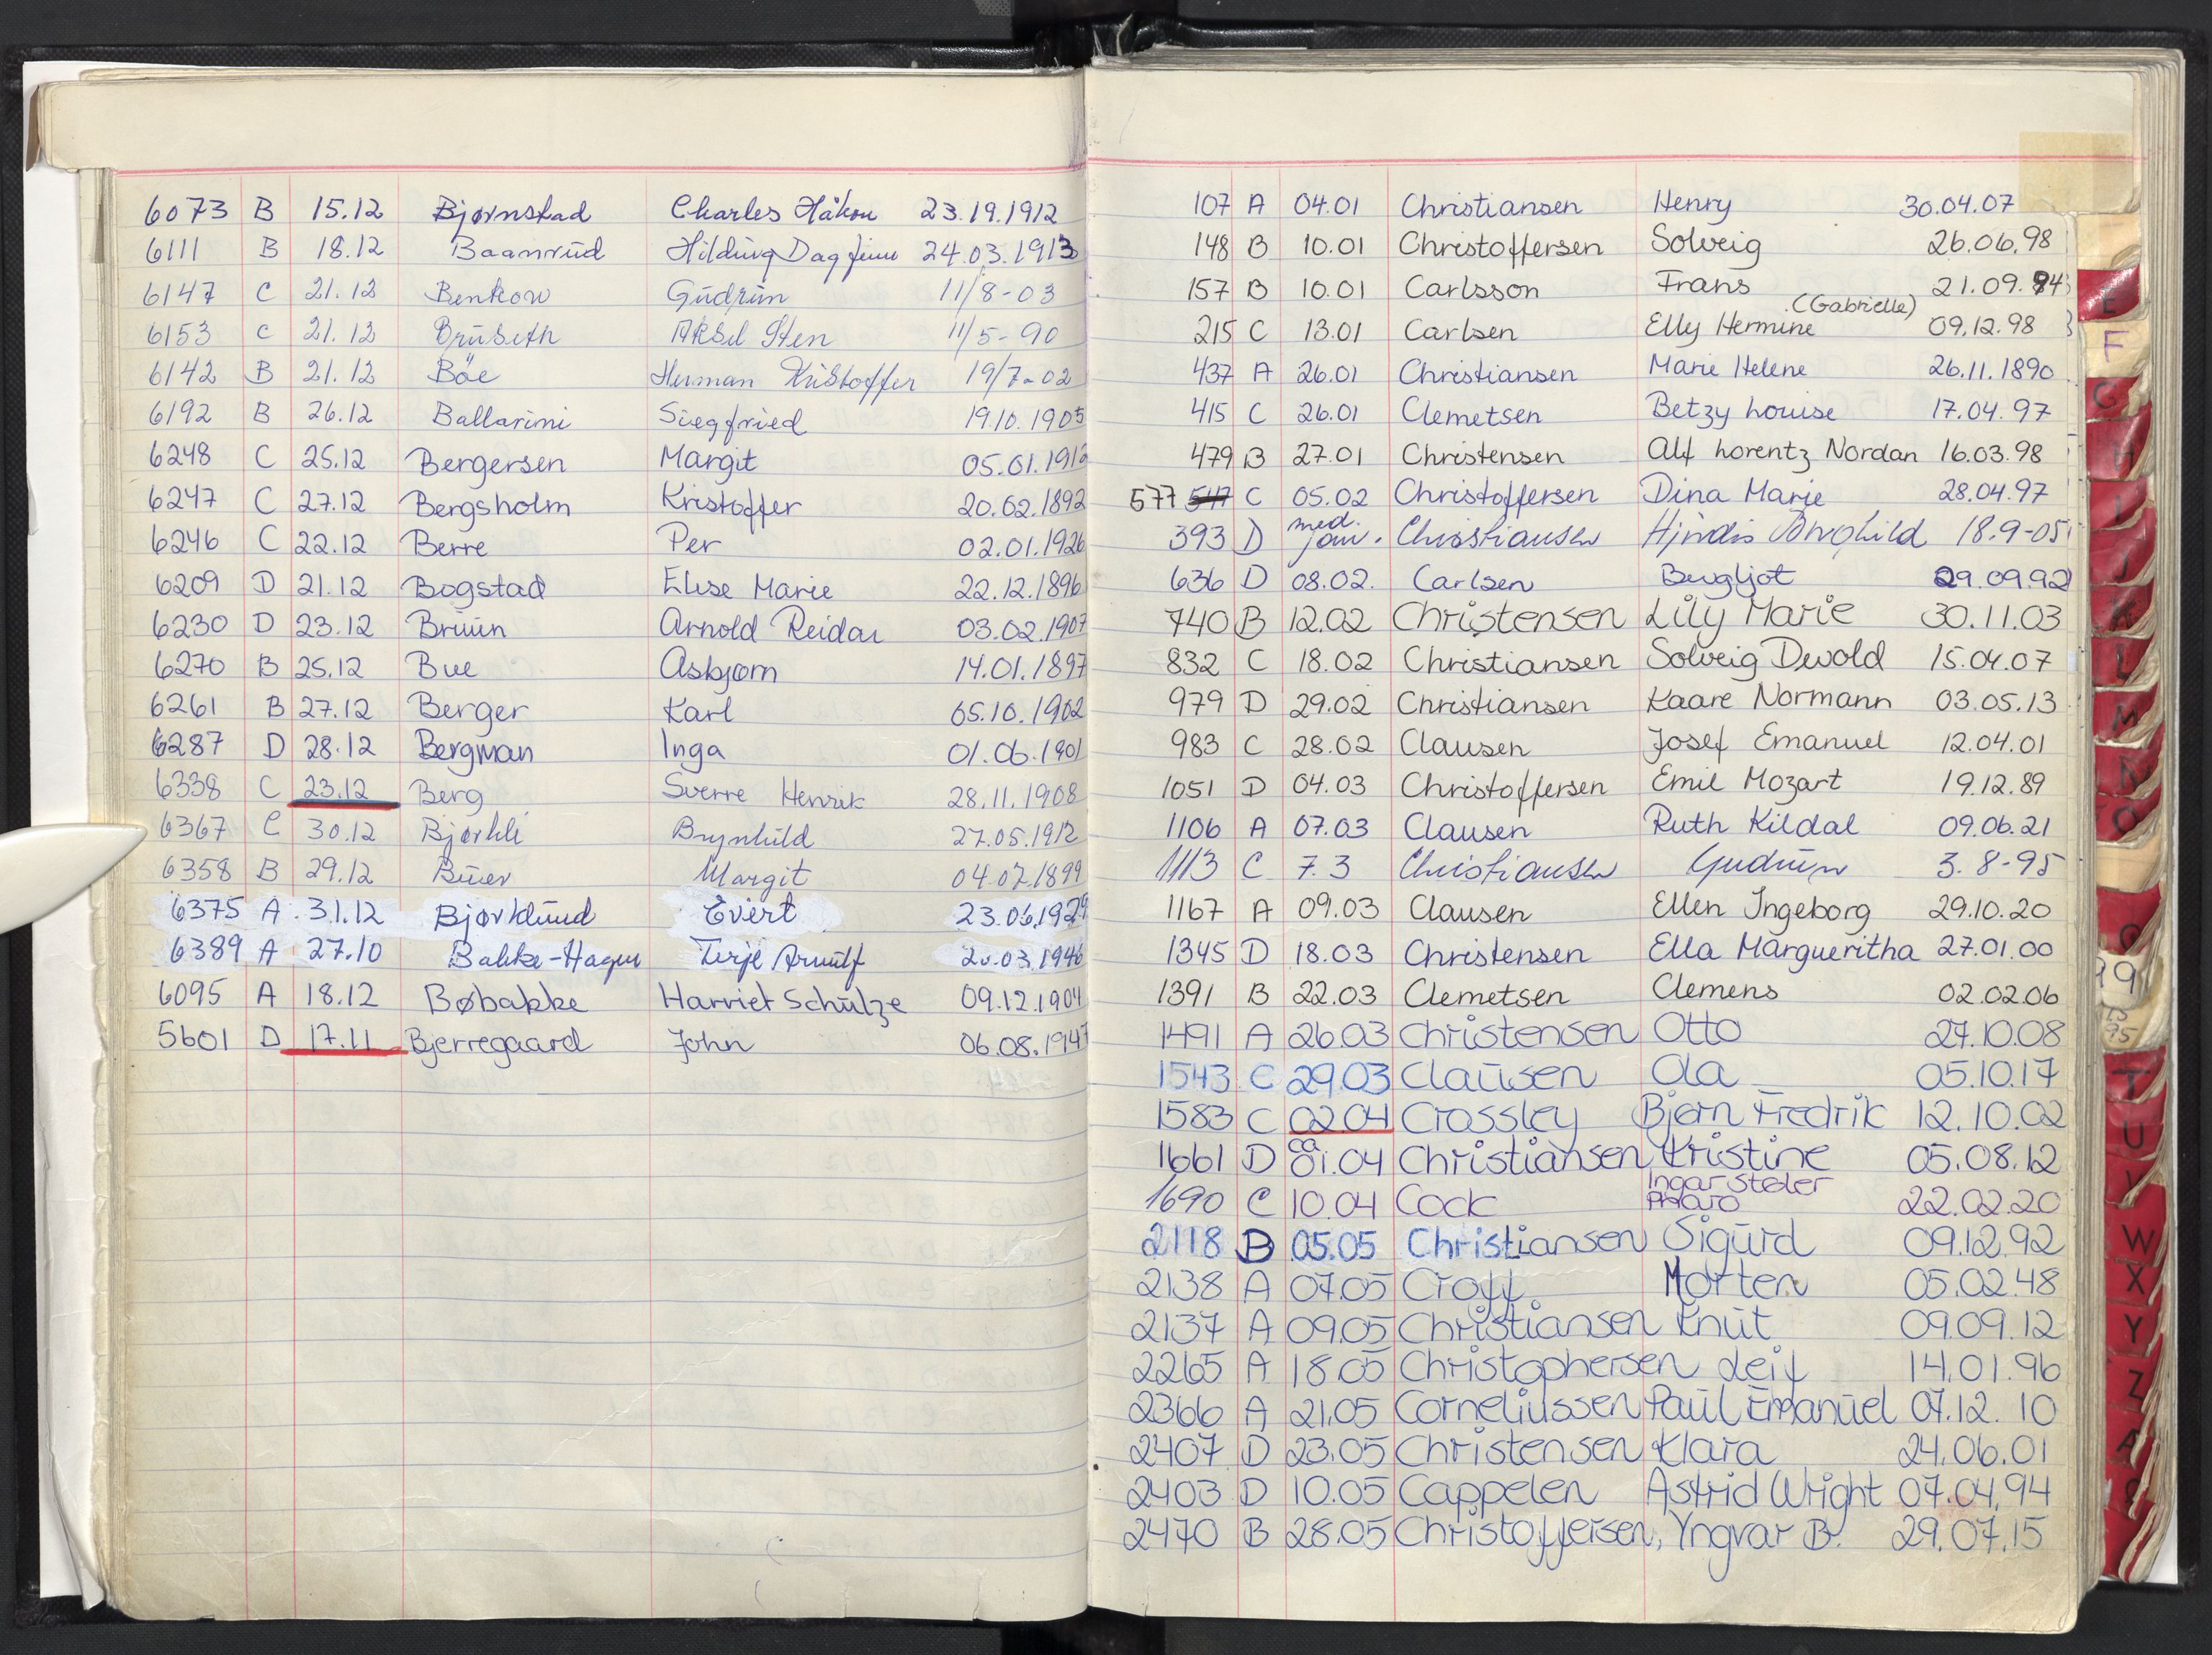 6073 B 15.12 Bjørnstad Charles Håkon 23.19.1912
6111 B 18.12 Baanrud Hilding Dagfinn 24.03.1913
6147 C 21.12 Benkow Gudrun 11/8-03
6153 C 21.12 Bruseth Aksel Sten 11/5-90
6142 B 21.12 Böe Herman Kristoffer 19/7-02
6192 B 26.12 Ballarini Siegfried 19.10.1905
6248 C 25.12 Bergersen Margit 05.01.1912
6247 C 27.12 Bergsholm Kristoffer 20.02.1892
6246 C 22.12 Berre Per 02.01.1926
6209 D 21.12 Bogstad Elise Marie 22.12.1896
6230 D 23.12 Bruun Arnold Reidar 03.02.1907
6270 B 25.12 Bue Asbjørn 14.01.1897
6261 B 27.12 Berger Karl 05.10.1902
6287 D 28.12 Bergman Inga 01.06.1901
6338 C 23.12 Berg Sverre Henrik 28.11.1908
6367 C 30.12 Bjørkli Brynhild 27.05.1912
6358 B 29.12 Buer Margit 04.07.1899
6375 A 31.12 Bjørklund Evert 23.06.1929
6389 A 27.10 Bakke-Hagen Terje Arnulf 20.03.1946
6095 A 18.12 Bøbakke Harriet Schulze 09.12.1904
5601 D 17.11 Bjerregaard John 06.08.1947
107 A 04.01 Christiansen Henry 30.04.07
148 B 10.01 Christoffersen Solveig 26.06.98
157 B 10.01 Carlsson Frans 21.09.94
(Gabrielle)
215 C 13.01 Carlsen Elly Hermine 09.12.98
437 A 26.01 Christiansen Marie Helene 26.11.1890
415 C 26.01 Clemetsen Betzy Louise 17.04.97
479 B 27.01 Christensen Alf Lorentz Nordan 16.03.98
577 547 C 05.02 Christoffersen Dina Marie 28.04.97
393 D med. jan. Christiansen Hjørdis Borghild 18.9-05
636 D 08.02. Carlsen Bergljot 29.09.92
740 B 12.02 Christensen Lily Marie 30.11.03
832 C 18.02 Christiansen Solveig Devold 15.04.07
979 D 29.02 Christiansen Kaare Normann 03.05.13
983 C 28.02 Clausen Josef Emanuel 12.04.01
1051 D 04.03 Christoffersen Emil Mozart 19.12.89
1106 A 07.03 Clausen Ruth Kildal 09.06.21
1113 C 7.3 Christiansen Gudrun 3.8-95
1167 A 09.03 Clausen Ellen Ingeborg 29.10.20
1345 D 18.03 Christensen Ella Margueritha 27.01.00
1391 B 22.03 Clemetsen Clemens 02.02.06
1491 A 26.03 Christensen Otto 27.10.08
1543 C 29.03 Clausen Ola 05.10.17
1583 C 02.04 Crossley Bjørn Fredrik 12.10.02
1661 D ca 01.04 Christiansen Kristine 05.08.12
1690 C 10.04 Cock Ingar Støler 22.02.20
2118 B 05.05 Christiansen Sigurd 09.12.92
2138 A 07.05 Croff Morten 05.02.48
2137 A 09.05 Christiansen Knut 09.09.12
2265 A 18.05 Christophersen Leif 14.01.96
2366 A 21.05 Corneliussen Paul Emanuel 07.12.10
2407 D 23.05 Christensen Klara 24.06.01
2403 D 10.05 Cappelen Astrid Wright 07.04.94
2470 B 28.05 Christoffersen, Yngvar B. 29.07.15
E
F
G
H
I
J
K
L
M
N
O
T
U
V
W
X
Y
Z